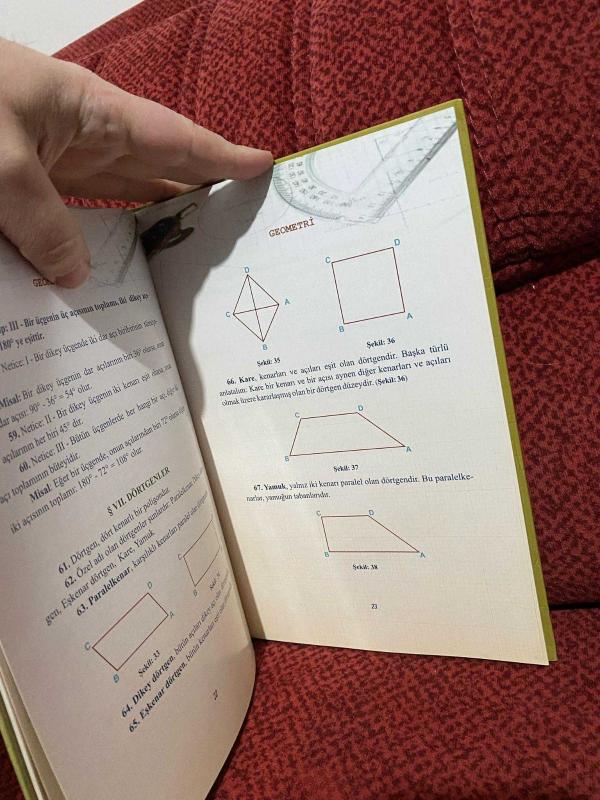 GEO
III - Bir üçgenin üç açısının toplamı, iki dikey
180° ye eşittir.
Netice: I - Bir dikey üçgende iki dar açı birbirinin
Misal: Bir dikey üçgenin dar açılarının biri 36° olursa,
dar açısı: 90° - 36° = 54° olur.
59. Netice: II - Bir dikey üçgenin iki kenarı eşit olursa,
açılarının her biri 45° dir.
60. Netice: III - Bütün üçgenlerde her hangi bir açı, diğer
açı toplamının büteyidir.
Misal. Eğer bir üçgende, onun açılarından biri 72° olursa
iki açısının toplamı: 180° - 72° = 108° olur.
§ VII. DÖRTGENLER
61. Dörtgen, dört kenarlı bir poligondur.
62. Özel adı olan dörtgenler şunlardır: Paralelkenar,
gen, Eşkenar dörtgen, Kare, Yamuk
63. Paralelkenar, karşılıklı kenarları paralel olan dörtgen
D
C
A
B
C
B
Şekil: 33
64. Dikey dörtgen, bütün açıları dikey
65. Eşkenar dörtgen, bütün kenarları eşit
GEOMETRİ
D
C
A
B
Şekil: 35
C
D
B
A
Şekil: 36
66. Kare, kenarları ve açıları eşit olan dörtgendir. Başka türlü
anlatalım: Kare bir kenarı ve bir açısı aynen diğer kenarları ve açıları
olmak üzere kararlaşmış olan bir dörtgen düzeydir. (Şekil: 36)
C
D
B
A
Şekil: 37
67. Yamuk, yalnız iki kenarı paralel olan dörtgendir. Bu paralelke-
narlar, yamuğun tabanlarıdır.
C
D
B
A
Şekil: 38
23